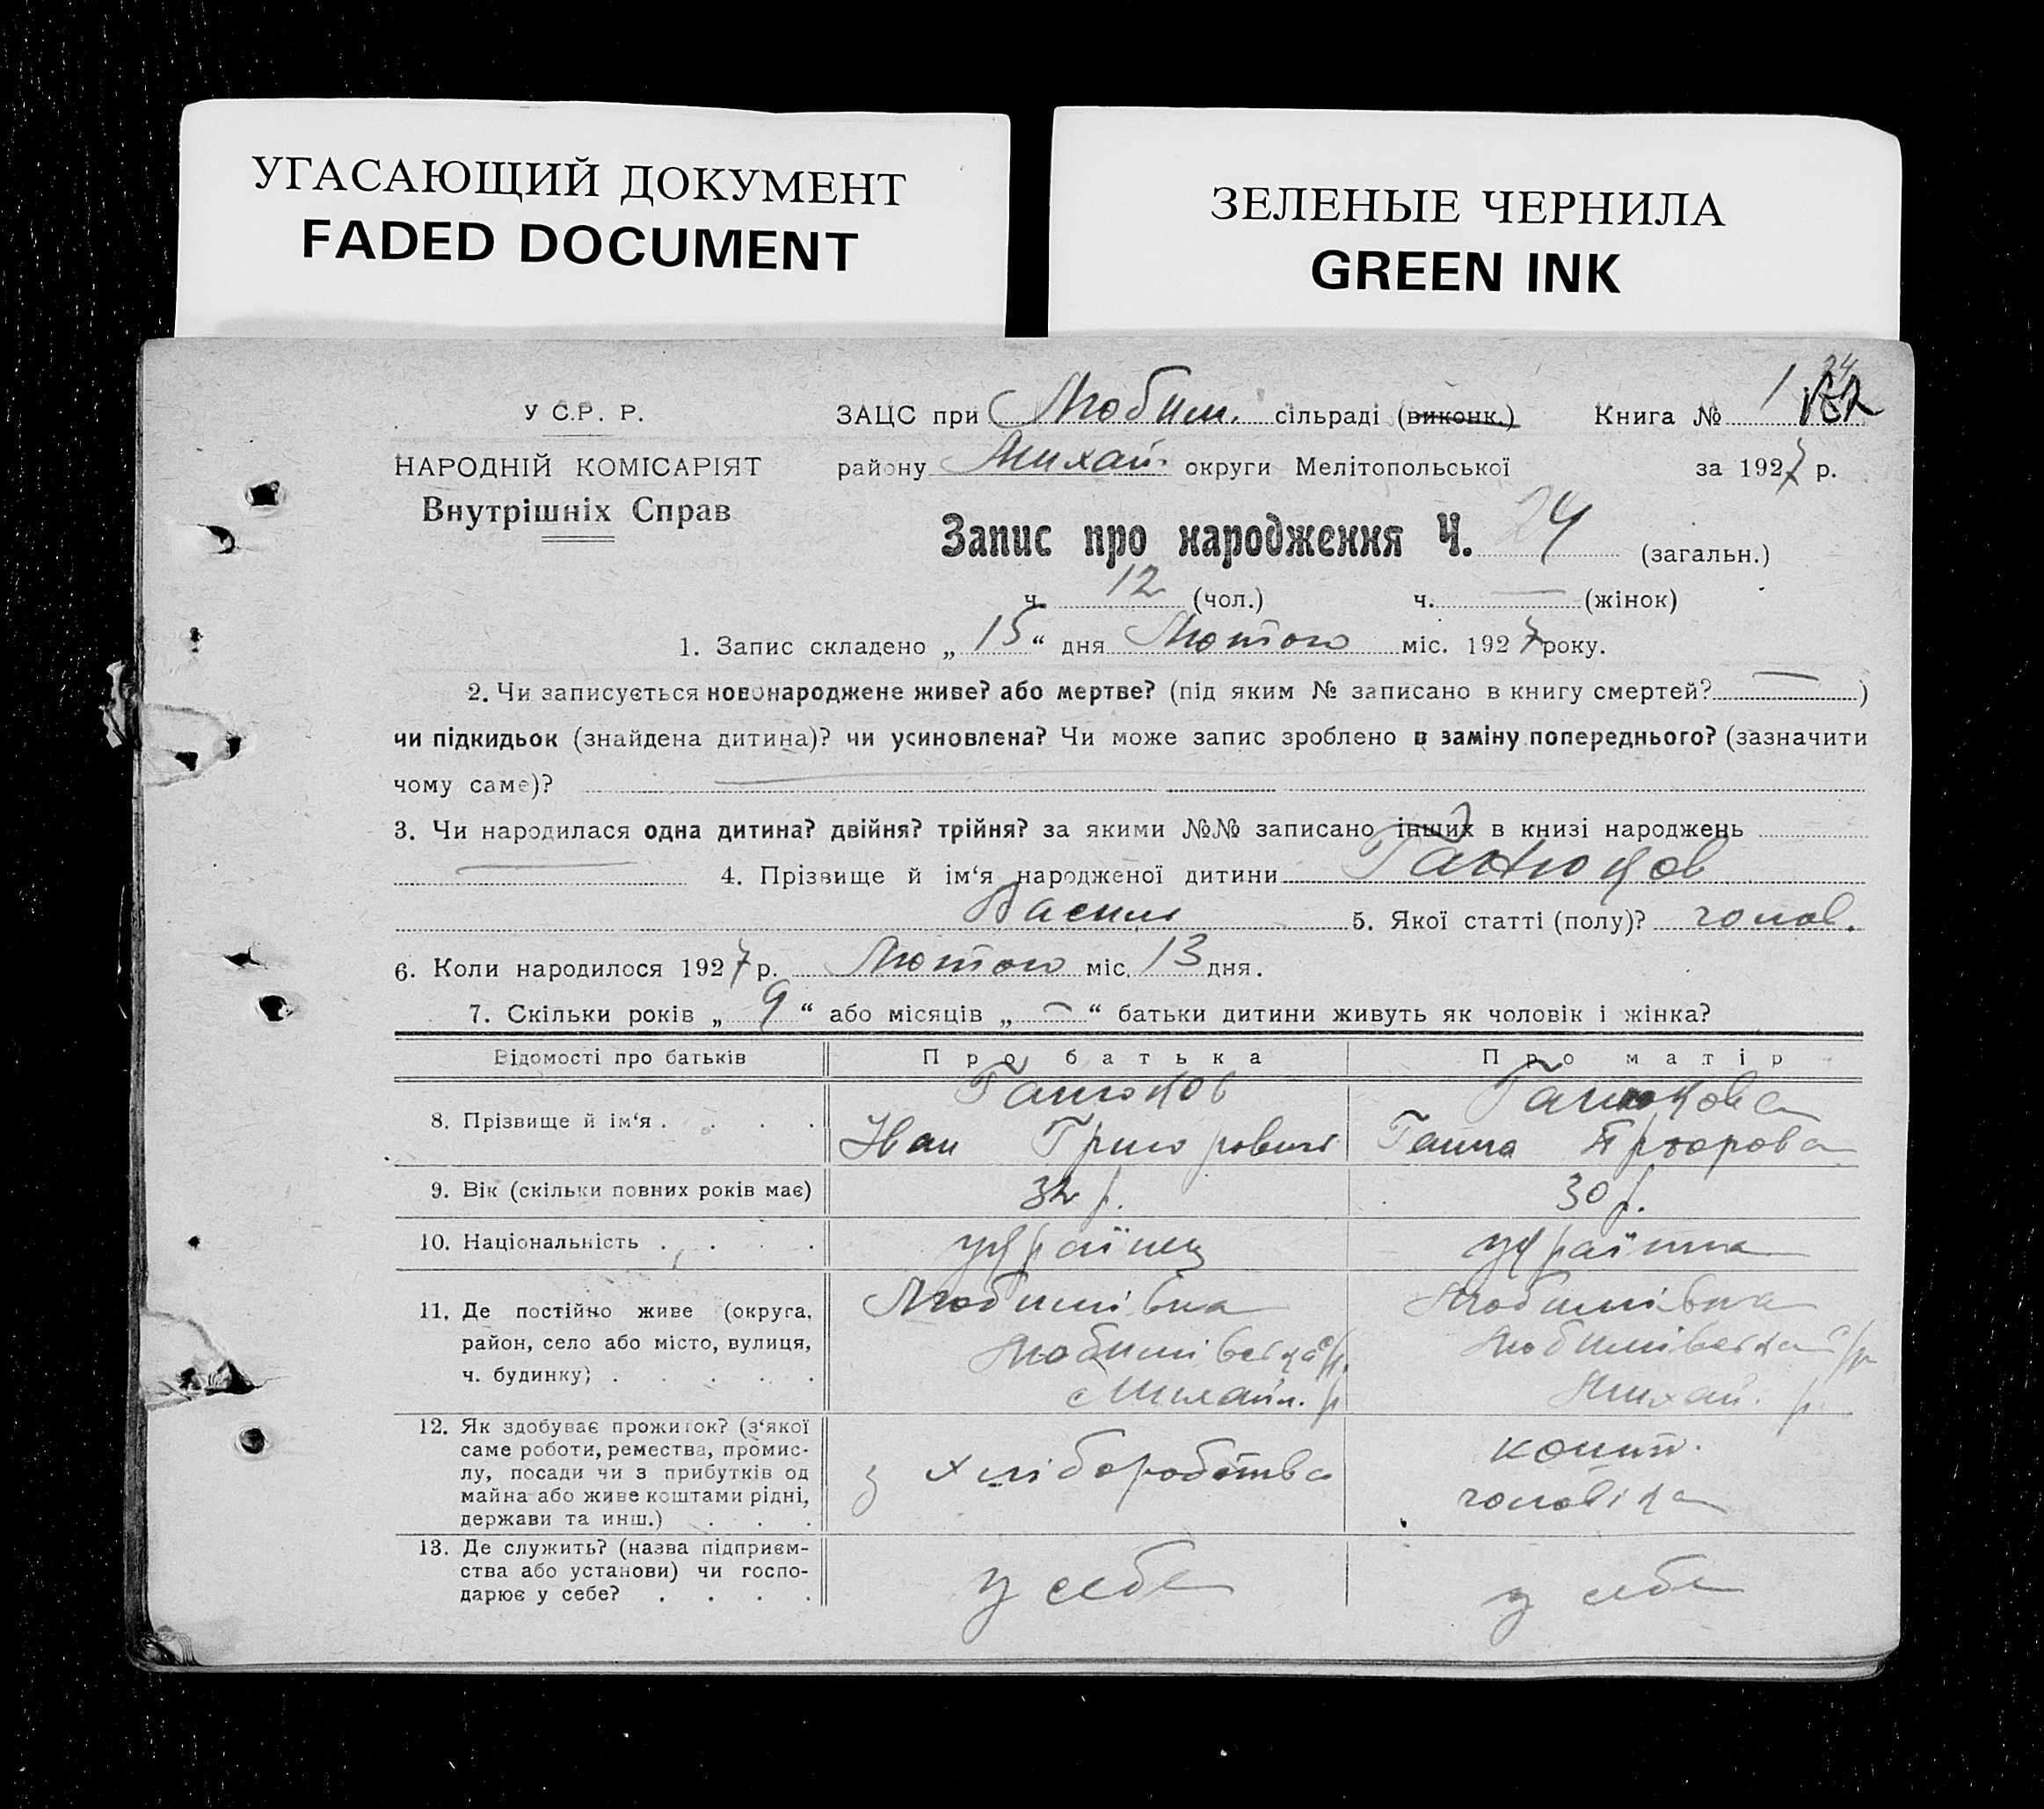 УГАСАЮЩИЙ ДОКУМЕНТ
FADED DOCUMENT
ЗЕЛЕНЫЕ ЧЕРНИЛА
GREEN INK
У С.Р. Р.
НАРОДНІЙ КОМІСАРІЯТ
Внутрішніх Справ
ЗАЦС при Любим. сільраді (виконк.) Книга № 1
району Михай. округи Мелітопольської за 1927 р.
Запис про народження Ч. 24 (загальн.)
ч. 12 (чол.) ч. — (жінок)
1. Запис складено „ 15 “ дня Лютого міс. 1927 року.
2. Чи записується новонароджене живе? або мертве? (під яким № записано в книгу смертей? — )
чи підкидьок (знайдена дитина)? чи усиновлена? Чи може запис зроблено в заміну попереднього? (зазначити
чому саме)? —
3. Чи народилася одна дитина? двійня? трійня? за якими №№ записано інших в книзі народжень
— 4. Прізвище й ім‘я народженої дитини
Василь 5. Якої статті (полу)? чолов.
6. Коли народилося 1927 р. Лютого міс. 13 дня.
7. Скільки років „ 9 “ або місяців „ — “ батьки дитини живуть як чоловік і жінка?
Відомості про батьків Про батька Про матір
8. Прізвище й ім‘я . . . . .
Іван Григорович Ганна
9. Вік (скільки повних років має) 32 р. 30 р.
10. Національність . . . . . українец українка
11. Де постійно живе (округа, Любимівка Любимівка
район, село або місто, вулиця, Любимівська с/р. Любимівська с/р
ч. будинку) . . . . . Михайл. р Михай. р.
12. Як здобуває прожиток? (з‘якої
саме роботи, ремества, промис-
лу, посади чи з прибутків од
майна або живе коштами рідні,
держави та инш.) . . .
з хліборобства
кошт.
чоловіка
13. Де служить? (назва підприєм-
ства або установи) чи госпо-
дарює у себе? . . . .
у себе у себе